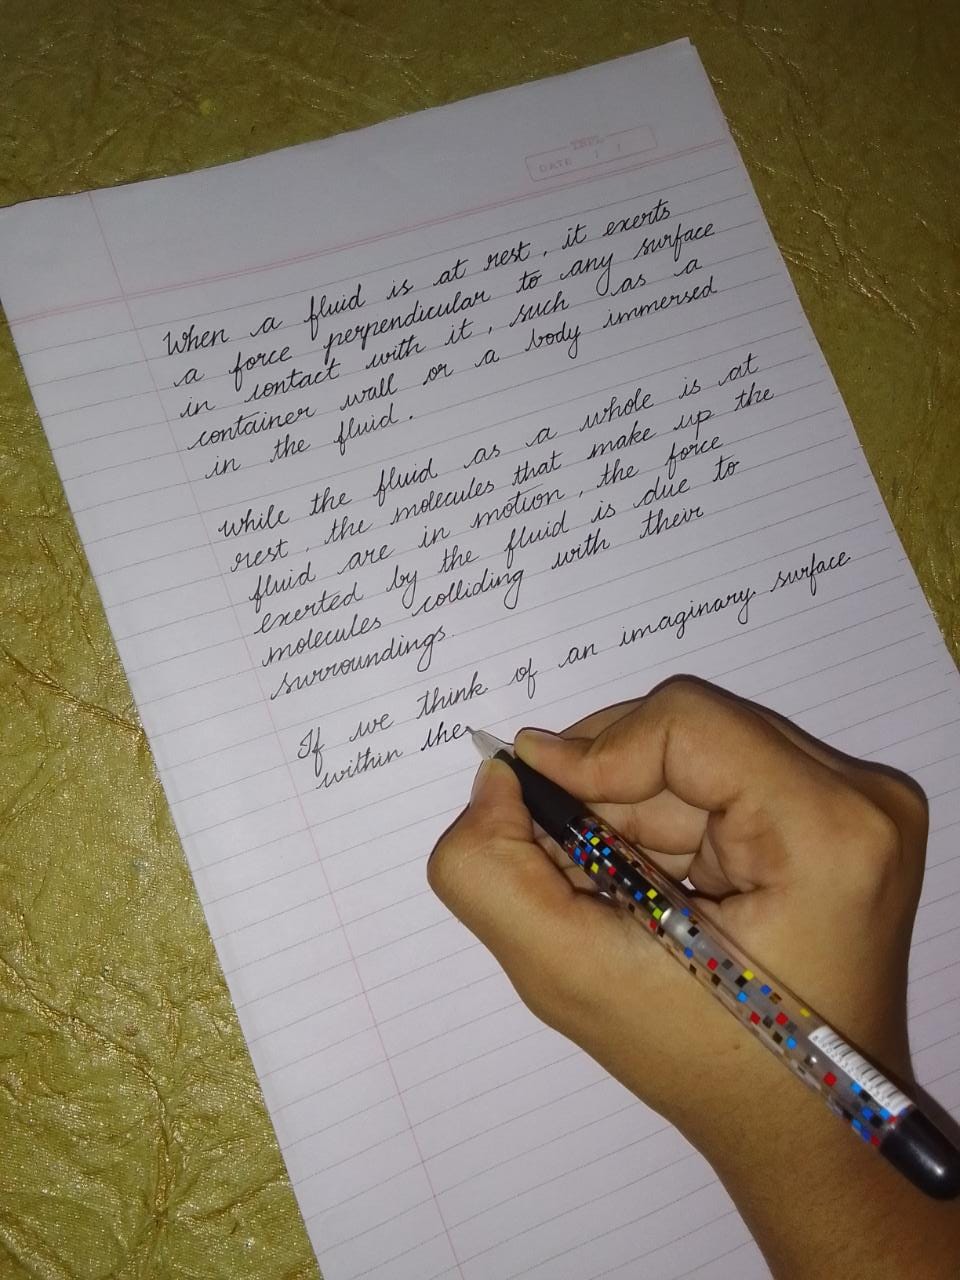 DATE / /
When a fluid is at rest, it exerts
a force perpendicular to any surface
in contact with it, such as a
container wall or a body immersed
in the fluid.
while the fluid as a whole is at
rest, the molecules that make up the
fluid are in motion, the force
exerted by the fluid is due to
molecules colliding with their
surroundings.
If we think of an imaginary surface
within the